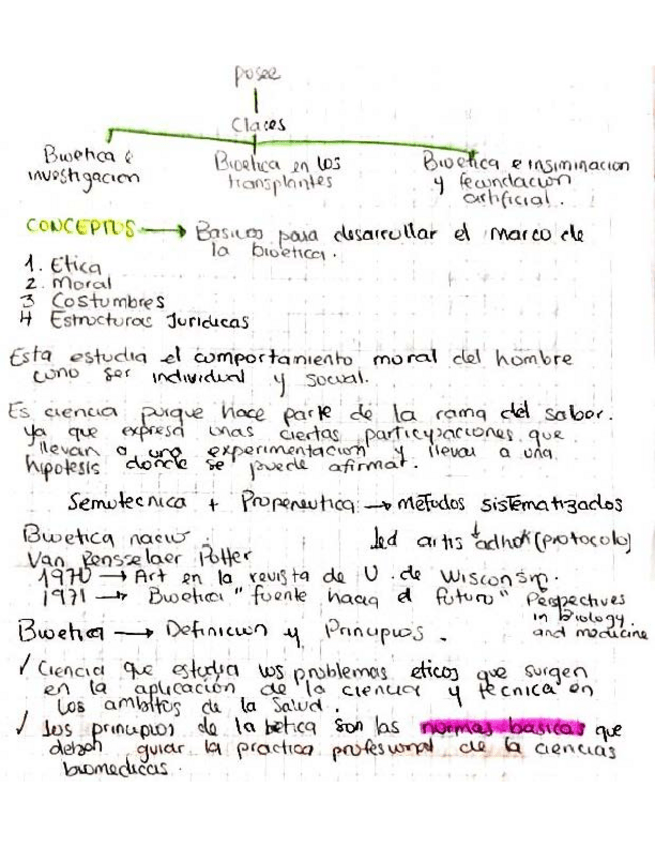 posee
Claces
Bioetica e investigacion
Bioetica en los transplantes
Bioetica e insiminacion y fecundacion artificial.
CONCEPTOS → Basicos para desarrollar el marco de
la bioetica.
1. Etica
2. Moral
3 Costumbres
4 Estructuras Juridicas
Esta estudia el comportamiento moral del hombre
como ser individual y social.
Es ciencia porque hace parte de la rama del sabor.
ya que expresa unas ciertas participaciones que
llevan a una experimentacion y llevar a una
hipotesis donde se puede afirmar.
Semiotecnica + Propeneutica → metodos sistematizados
Bioetica nacio. led artis adhok (protocolo)
Van Rensselaer Potter
1970 → Art en la revista de U. de Wisconsin.
1971 → Bioetica "fuente hacia el futuro" Perspectives
in Biology.
and medicine
Bioetica → Definicion y Principios.
✓ Ciencia que estudia los problemas eticos que surgen
en la aplicación de la ciencia y tecnica en
los ambitos de la Salud.
✓ los principios de la betica son las normas basicas que
deben guiar la practica profesional de la ciencias
biomedicas.